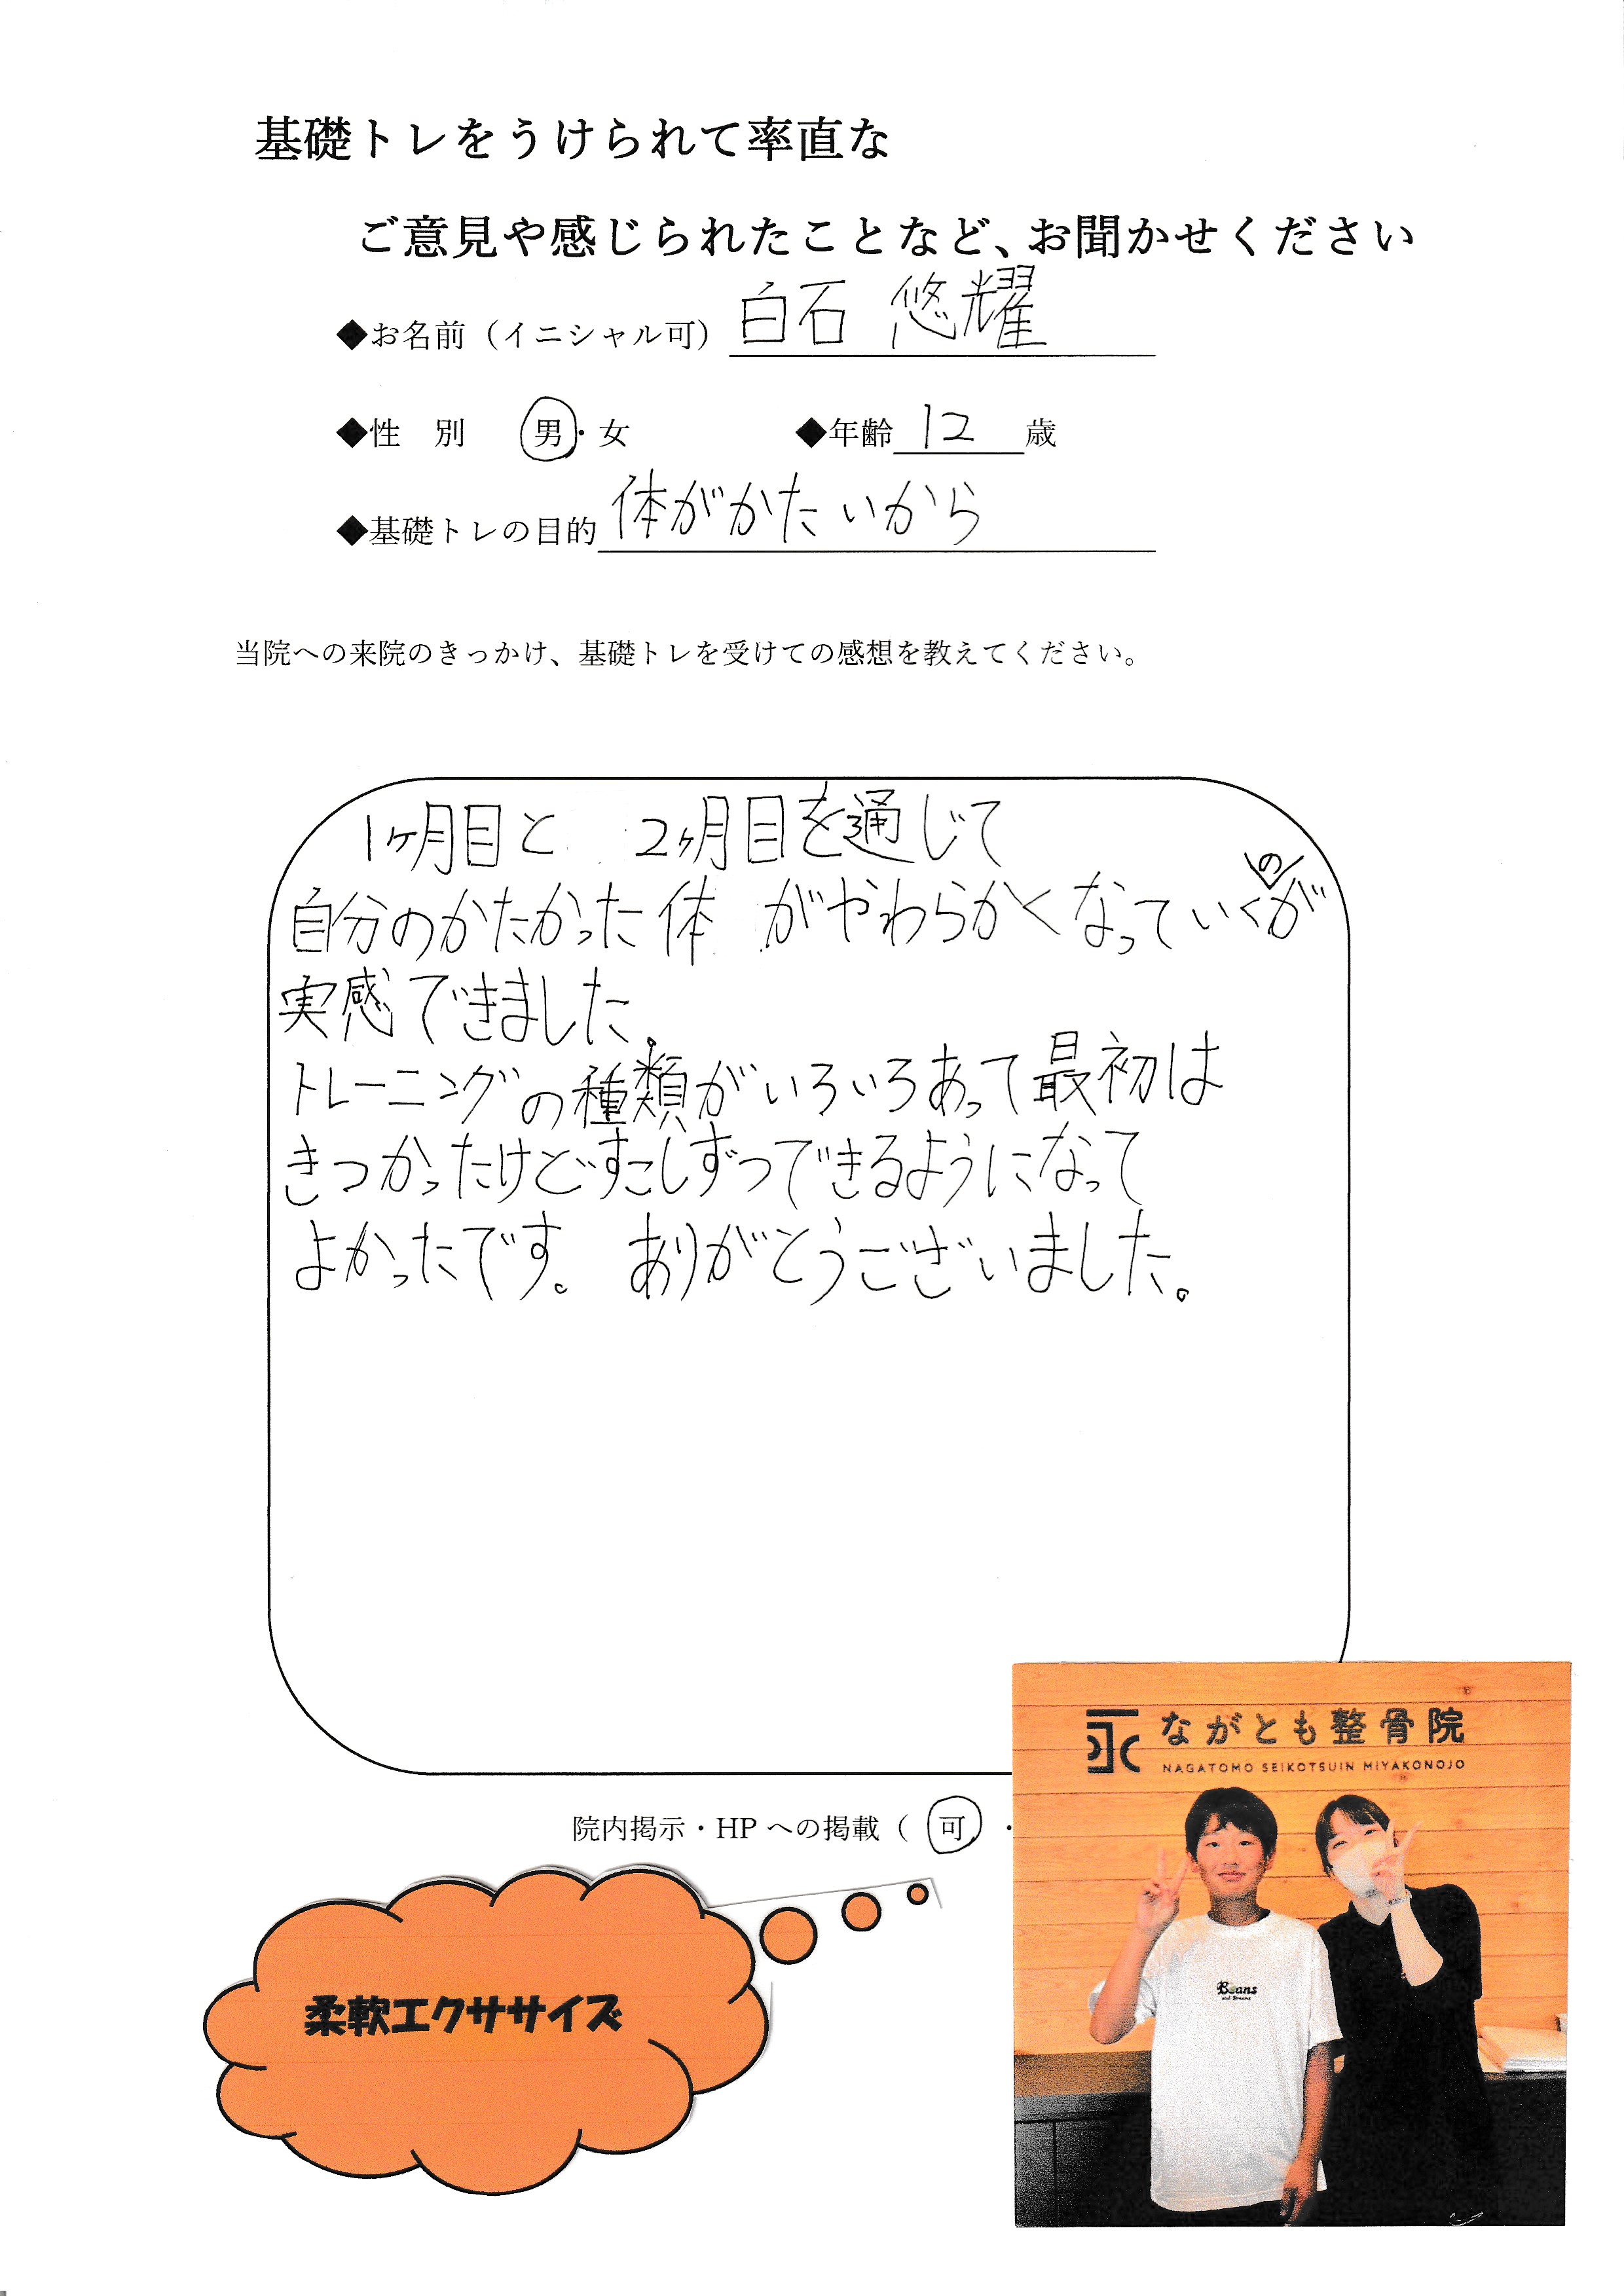 基礎トレをうけられて率直な
ご意見や感じられたことなど、お聞かせください
◆お名前（イニシャル可）白石 悠耀
◆性 別 男・女 ◆年齢 12 歳
◆基礎トレの目的 体がかたいから
当院への来院のきっかけ、基礎トレを受けての感想を教えてください。
1ヶ月目と 2ヶ月目を通じて
自分のかたかった体 がやわらかくなっていくのが
実感できました。
トレーニングの種類がいろいろあって最初は
きつかったけどすこしずつできるようになって
よかったです。 ありがとうございました。
院内掲示・HPへの掲載（ 可 ・
柔軟エクササイズ
ながとも整骨院
NAGATOMO SEIKOTSUIN MIYAKONOJO
Beans
and Dreams